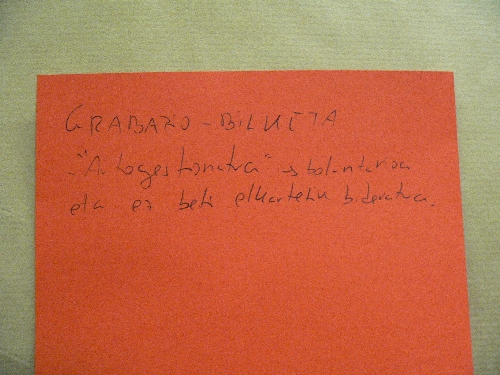 GRABAZIO - BILKETA
- "Autogestionatua" → boluntarioa
eta ez beti elkartetik bideratua.